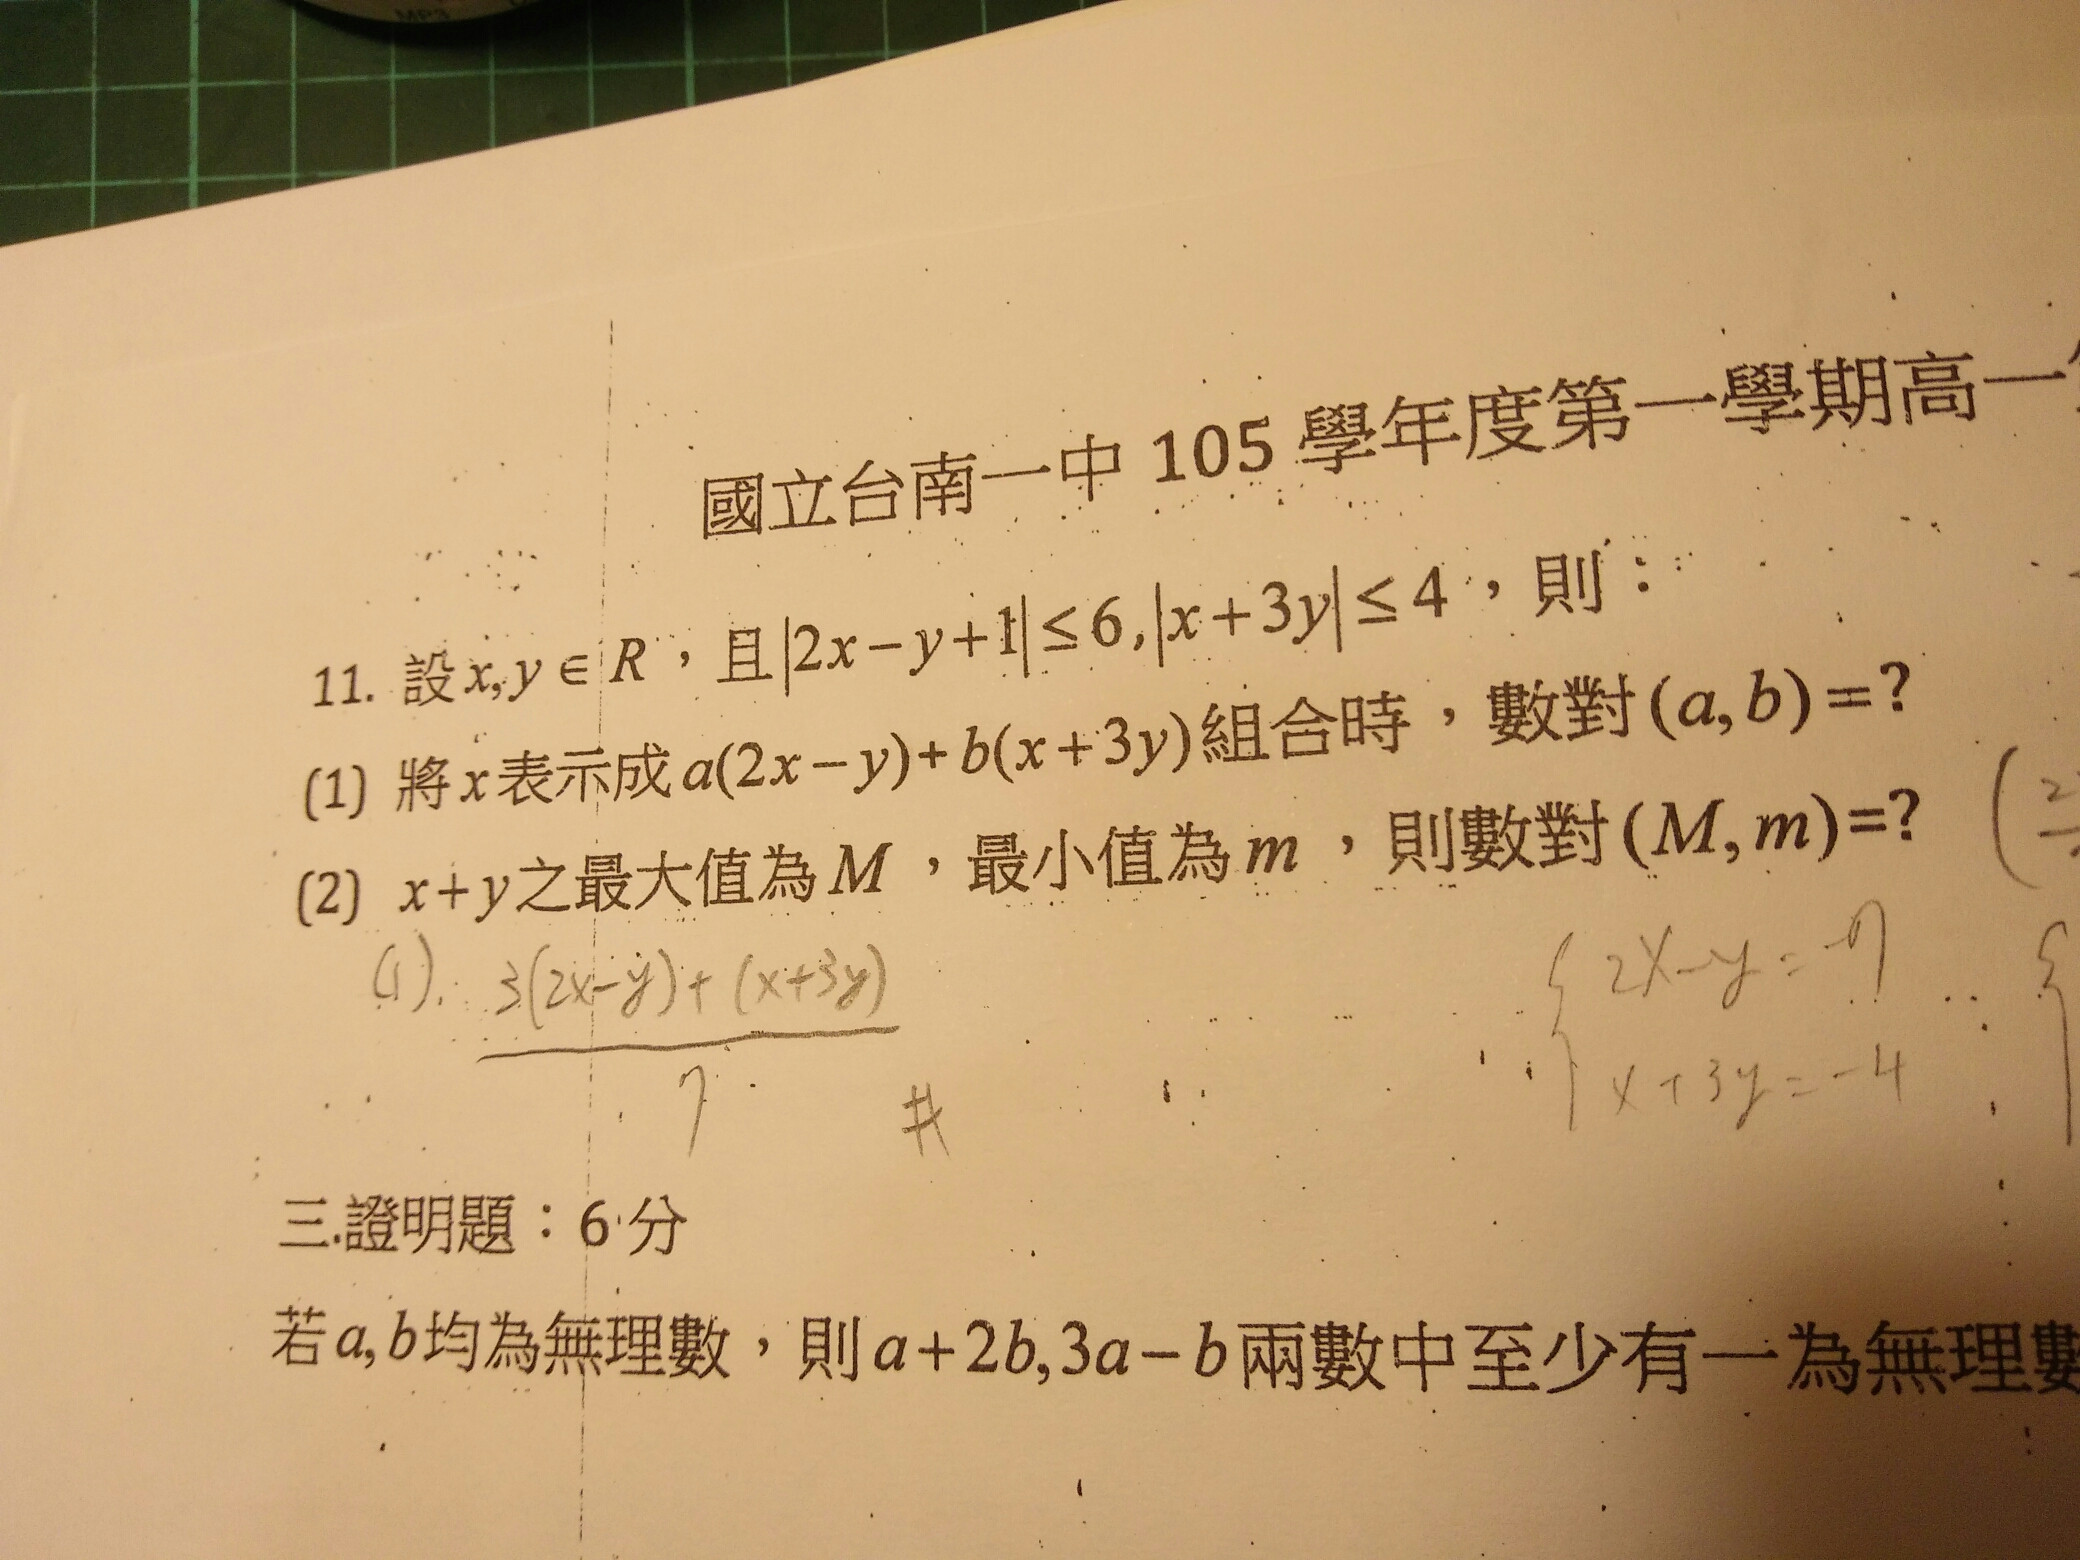 MP3
國立台南一中 105 學年度第一學期高一
11. 設 x, y ∈ R，且 |2x-y+1| ≤ 6, |x+3y| ≤ 4，則：
(1) 將 x 表示成 a(2x-y)+b(x+3y) 組合時，數對 (a,b)=?
(2) x+y 之最大值為 M，最小值為 m，則數對 (M,m)=?
(1). 3(2x-y)+(x+3y)
7 #
{ 2x-y=-7
x+3y=-4
三.證明題：6 分
若 a,b 均為無理數，則 a+2b,3a-b 兩數中至少有一為無理數